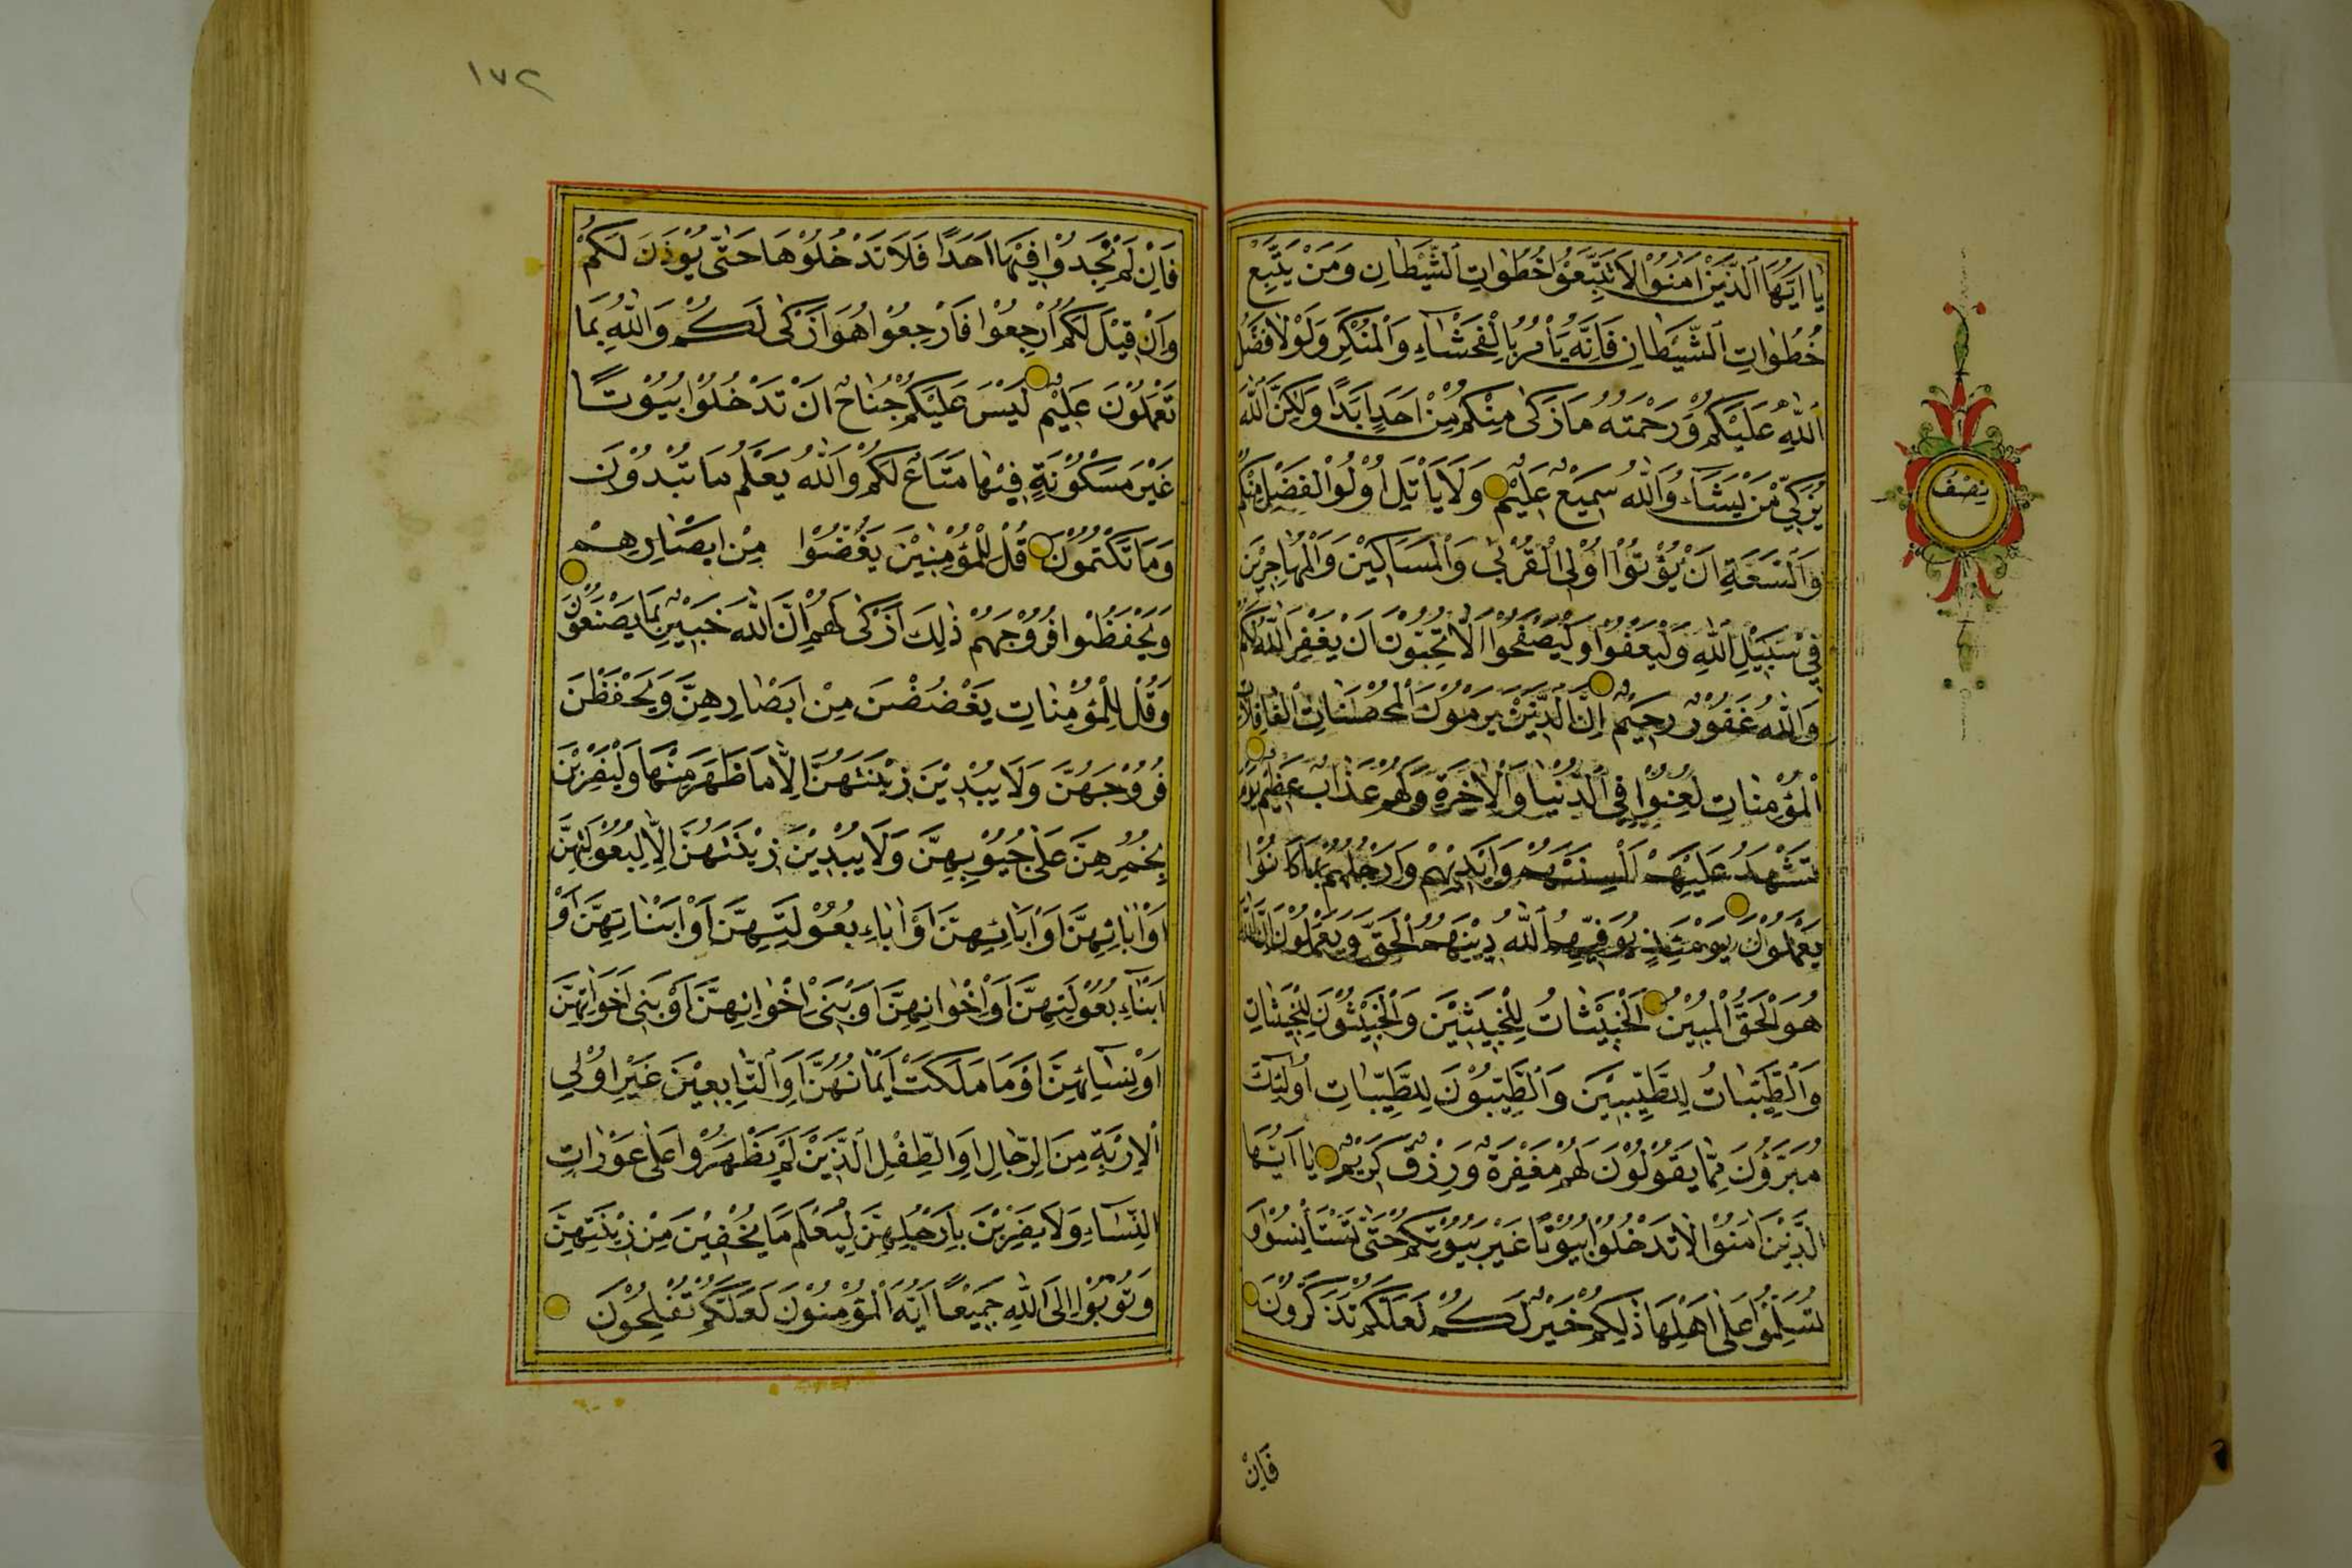 يَا اَيُّهَا الَّذِيْنَ اٰمَنُوْا لَا تَتَّبِعُوْا خُطُوَاتِ الشَّيْطَانِ وَمَنْ يَتَّبِعْ
خُطُوَاتِ الشَّيْطَانِ فَاِنَّهُ يَأْمُرُ بِالْفَحْشَاۤءِ وَالْمُنْكَرِ وَلَوْلَا فَضْلُ
اللّٰهِ عَلَيْكُمْ وَرَحْمَتُهُ مَا زَكٰى مِنْكُمْ مِنْ اَحَدٍ اَبَدًا وَلٰكِنَّ اللّٰهَ
يُزَكِّي مَنْ يَشَاۤءُ وَاللّٰهُ سَمِيْعٌ عَلِيْمٌ وَلَا يَأْتَلِ اُولُوا الْفَضْلِ مِنْكُمْ
وَالسَّعَةِ اَنْ يُؤْتُوْا اُولِى الْقُرْبٰى وَالْمَسَاكِيْنَ وَالْمُهَاجِرِيْنَ
فِي سَبِيْلِ اللّٰهِ وَلْيَعْفُوْا وَلْيَصْفَحُوْا اَلَا تُحِبُّوْنَ اَنْ يَغْفِرَ اللّٰهُ لَكُمْ
وَاللّٰهُ غَفُوْرٌ رَحِيْمٌ اِنَّ الَّذِيْنَ يَرْمُوْنَ الْمُحْصَنَاتِ الْغَافِلَاتِ
الْمُؤْمِنَاتِ لُعِنُوْا فِي الدُّنْيَا وَالْاٰخِرَةِ وَلَهُمْ عَذَابٌ عَظِيْمٌ يَوْمَ
تَشْهَدُ عَلَيْهِمْ اَلْسِنَتُهُمْ وَاَيْدِيْهِمْ وَاَرْجُلُهُمْ بِمَا كَانُوْا
يَعْمَلُوْنَ يَوْمَئِذٍ يُوَفِّيْهِمُ اللّٰهُ دِيْنَهُمُ الْحَقَّ وَيَعْمَلُوْنَ اَنَّ اللّٰهَ
هُوَ الْحَقُّ الْمُبِيْنُ اَلْخَبِيْثَاتُ لِلْخَبِيْثِيْنَ وَالْخَبِيْثُوْنَ لِلْخَبِيْثَاتِ
وَالطَّيِّبَاتُ لِلطَّيِّبِيْنَ وَالطَّيِّبُوْنَ لِلطَّيِّبَاتِ اُولٰئِكَ
مُبَرَّؤُنَ مِمَّا يَقُوْلُوْنَ لَهُمْ مَغْفِرَةٌ وَرِزْقٌ كَرِيْمٌ يَا اَيُّهَا
الَّذِيْنَ اٰمَنُوْا لَا تَدْخُلُوْا بُيُوْتًا غَيْرَ بُيُوْتِكُمْ حَتّٰى تَسْتَأْنِسُوْا وَ
تُسَلِّمُوْا عَلٰى اَهْلِهَا ذٰلِكُمْ خَيْرٌ لَكُمْ لَعَلَّكُمْ تَذَكَّرُوْنَ
فَاِنْ
نِصْفُ
١٧٢
فَاِنْ لَمْ تَجِدُوْا فِيْهَا اَحَدًا فَلَا تَدْخُلُوْهَا حَتّٰى يُؤْذَنَ لَكُمْ
وَاِنْ قِيْلَ لَكُمُ ارْجِعُوْا فَارْجِعُوْا هُوَ اَزْكٰى لَكُمْ وَاللّٰهُ بِمَا
تَعْمَلُوْنَ عَلِيْمٌ لَيْسَ عَلَيْكُمْ جُنَاحٌ اَنْ تَدْخُلُوْا بُيُوْتًا
غَيْرَ مَسْكُوْنَةٍ فِيْهَا مَتَاعٌ لَكُمْ وَاللّٰهُ يَعْلَمُ مَا تُبْدُوْنَ
وَمَا تَكْتُمُوْنَ قُلْ لِلْمُؤْمِنِيْنَ يَغُضُّوْا مِنْ اَبْصَارِهِمْ
وَيَحْفَظُوْا فُرُوْجَهُمْ ذٰلِكَ اَزْكٰى لَهُمْ اِنَّ اللّٰهَ خَبِيْرٌ بِمَا يَصْنَعُوْنَ
وَقُلْ لِلْمُؤْمِنَاتِ يَغْضُضْنَ مِنْ اَبْصَارِهِنَّ وَيَحْفَظْنَ
فُرُوْجَهُنَّ وَلَا يُبْدِيْنَ زِيْنَتَهُنَّ اِلَّا مَا ظَهَرَ مِنْهَا وَلْيَضْرِبْنَ
بِخُمُرِهِنَّ عَلٰى جُيُوْبِهِنَّ وَلَا يُبْدِيْنَ زِيْنَتَهُنَّ اِلَّا لِبُعُوْلَتِهِنَّ
اَوْ اٰبَائِهِنَّ اَوْ اٰبَائِهِنَّ اَوْ اٰبَاءِ بُعُوْلَتِهِنَّ اَوْ اَبْنَاتِهِنَّ اَوْ
اَبْنَاۤءِ بُعُوْلَتِهِنَّ اَوْ اِخْوَانِهِنَّ اَوْ بَنِيْ اِخْوَانِهِنَّ اَوْ بَنِيْ اَخَوَاتِهِنَّ
اَوْ نِسَاۤئِهِنَّ اَوْ مَا مَلَكَتْ اَيْمَانُهُنَّ اَوِ التَّابِعِيْنَ غَيْرِ اُولِي
الْاِرْبَةِ مِنَ الرِّجَالِ اَوِ الطِّفْلِ الَّذِيْنَ لَمْ يَظْهَرُوْا عَلٰى عَوْرَاتِ
النِّسَاۤءِ وَلَا يَضْرِبْنَ بِاَرْجُلِهِنَّ لِيُعْلَمَ مَا يُخْفِيْنَ مِنْ زِيْنَتِهِنَّ
وَتُوْبُوْا اِلَى اللّٰهِ جَمِيْعًا اَيُّهَ الْمُؤْمِنُوْنَ لَعَلَّكُمْ تُفْلِحُوْنَ